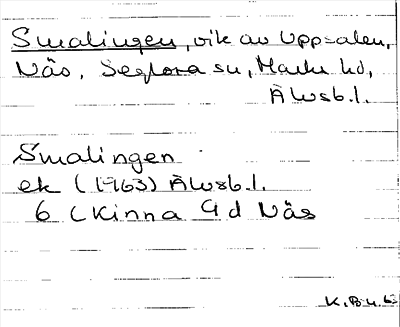 Smalingen, vik av Uppsalen,
Näs, Seglora sn, Marks hd,
Älvsb.l.
Smalingen
ek (1963) Älvsb.l.
6 (Kinna 9d Näs